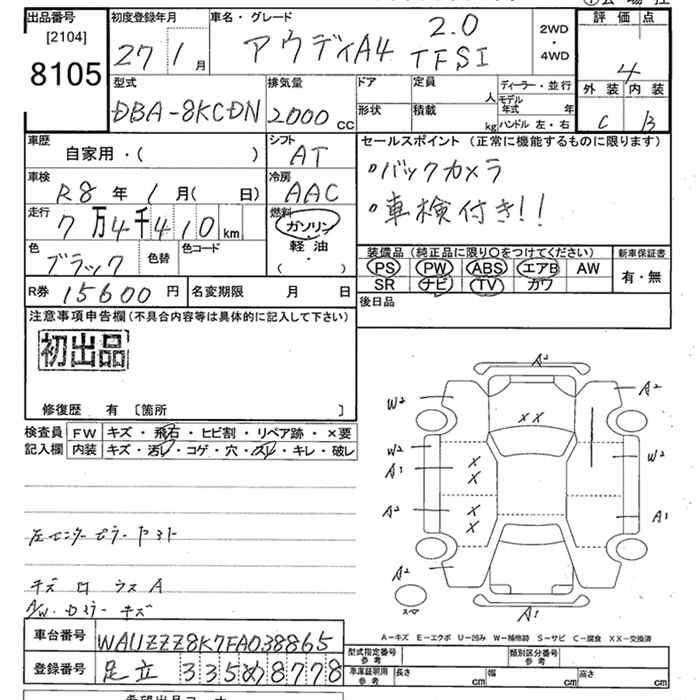 出品番号 初度登録年月 車名・グレード 評価点
[2104]
8105
27年 1月 アウディA4 2.0 TFSI
2WD・4WD
4
型式 排気量 ドア 定員 人 ディーラー・並行
DBA-8KCDN 2000 CC
形状 積載 kg モデル年式 年
ハンドル 左・右
外装 内装
C B
車歴 自家用・( )
シフト AT
セールスポイント (正常に機能するものに限ります)
・バックカメラ
・車検付き!!
車検 R8 年 1 月( 日)
冷房 AAC
走行 7万4千410 km
燃料 ガソリン・軽油・( )
色 ブラック 色替 色コード
装備品 (純正品に限り○をつけてください) 新車保証書
PS PW ABS エアB AW 有・無
SR ナビ TV カワ
R券 15600 円 名変期限 月 日
後日品
注意事項申告欄(不具合内容等は具体的に記入して下さい)
初出品
修復歴 有 〔箇所 〕
検査員記入欄
FW キズ・飛石・ヒビ割・リペア跡・×要
内装 キズ・汚レ・コゲ・穴・スレ・キレ・破レ
左センターピラー ヤスト
キズ ロ ラス A
A/W・ロミラー キズ
A2
W2 A2
XX
W2 W2
A1 XX
A2 XX A1
A2
スペア A1
A-キズ E-エクボ U-凹み W-補修跡 S-サビ C-腐食 XX-交換済
車台番号 WAUZZZ8K7FA038865
登録番号 足立 335 め 8778
型式指定番号 参考 類別区分番号 参考
車庫証明用 参考 長さ cm 幅 cm 高さ cm